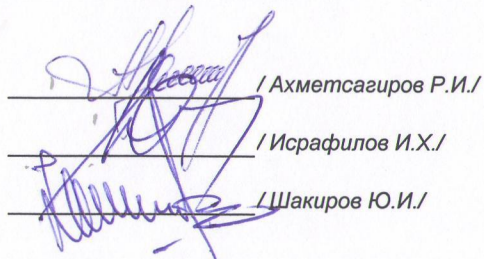 / Ахметсагиров Р.И./
/ Исрафилов И.Х./
/ Шакиров Ю.И./